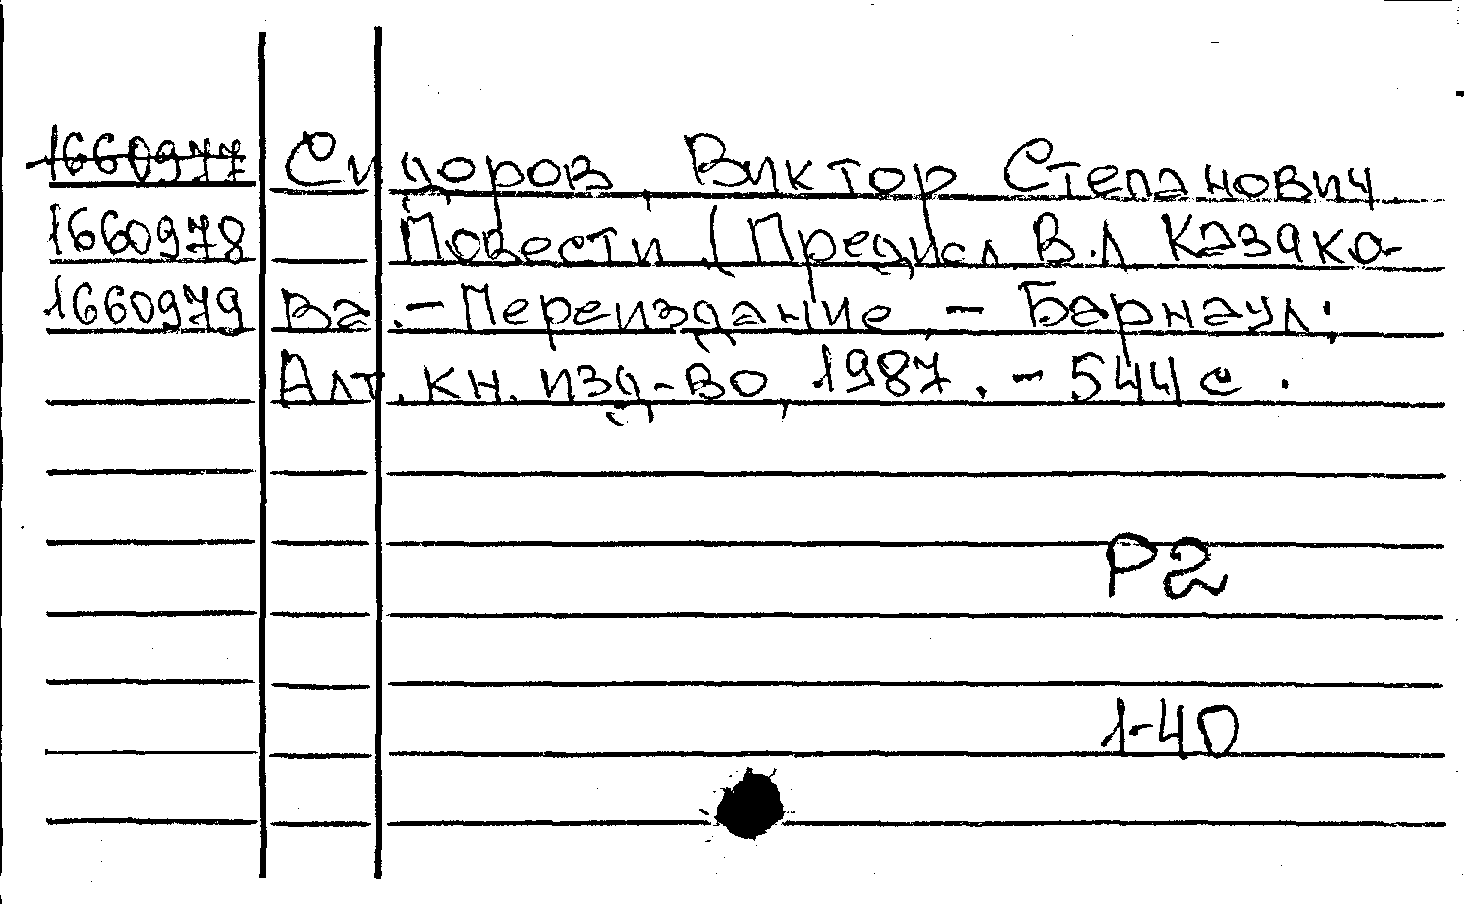 1660977 Сидоров, Виктор Степанович
1660978 Повести / Предисл В.Л Казако-
1660979 ва.- Переиздание - Барнаул:
Алт. кн. изд-во, 1987. - 544 с.
Р2
1-40